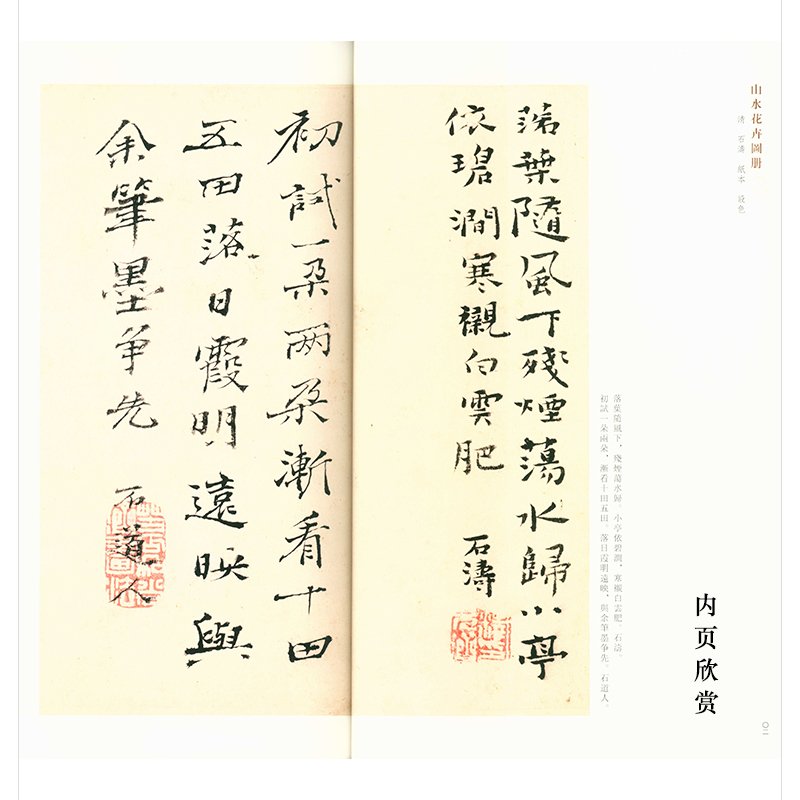 山水花卉圖册
清 石濤 紙本 設色
落葉隨風下殘煙蕩水歸小亭
依碧澗寒襯白雲肥
石濤
初試一朵兩朵漸看十田
五田落日霞明遠映與
余筆墨爭先
石道人
落葉隨風下，殘煙蕩水歸。小亭依碧澗，寒襯白雲肥。石濤。
初試一朵兩朵，漸看十田五田。落日霞明遠映，與余筆墨爭先。石道人。
内页欣赏
〇二